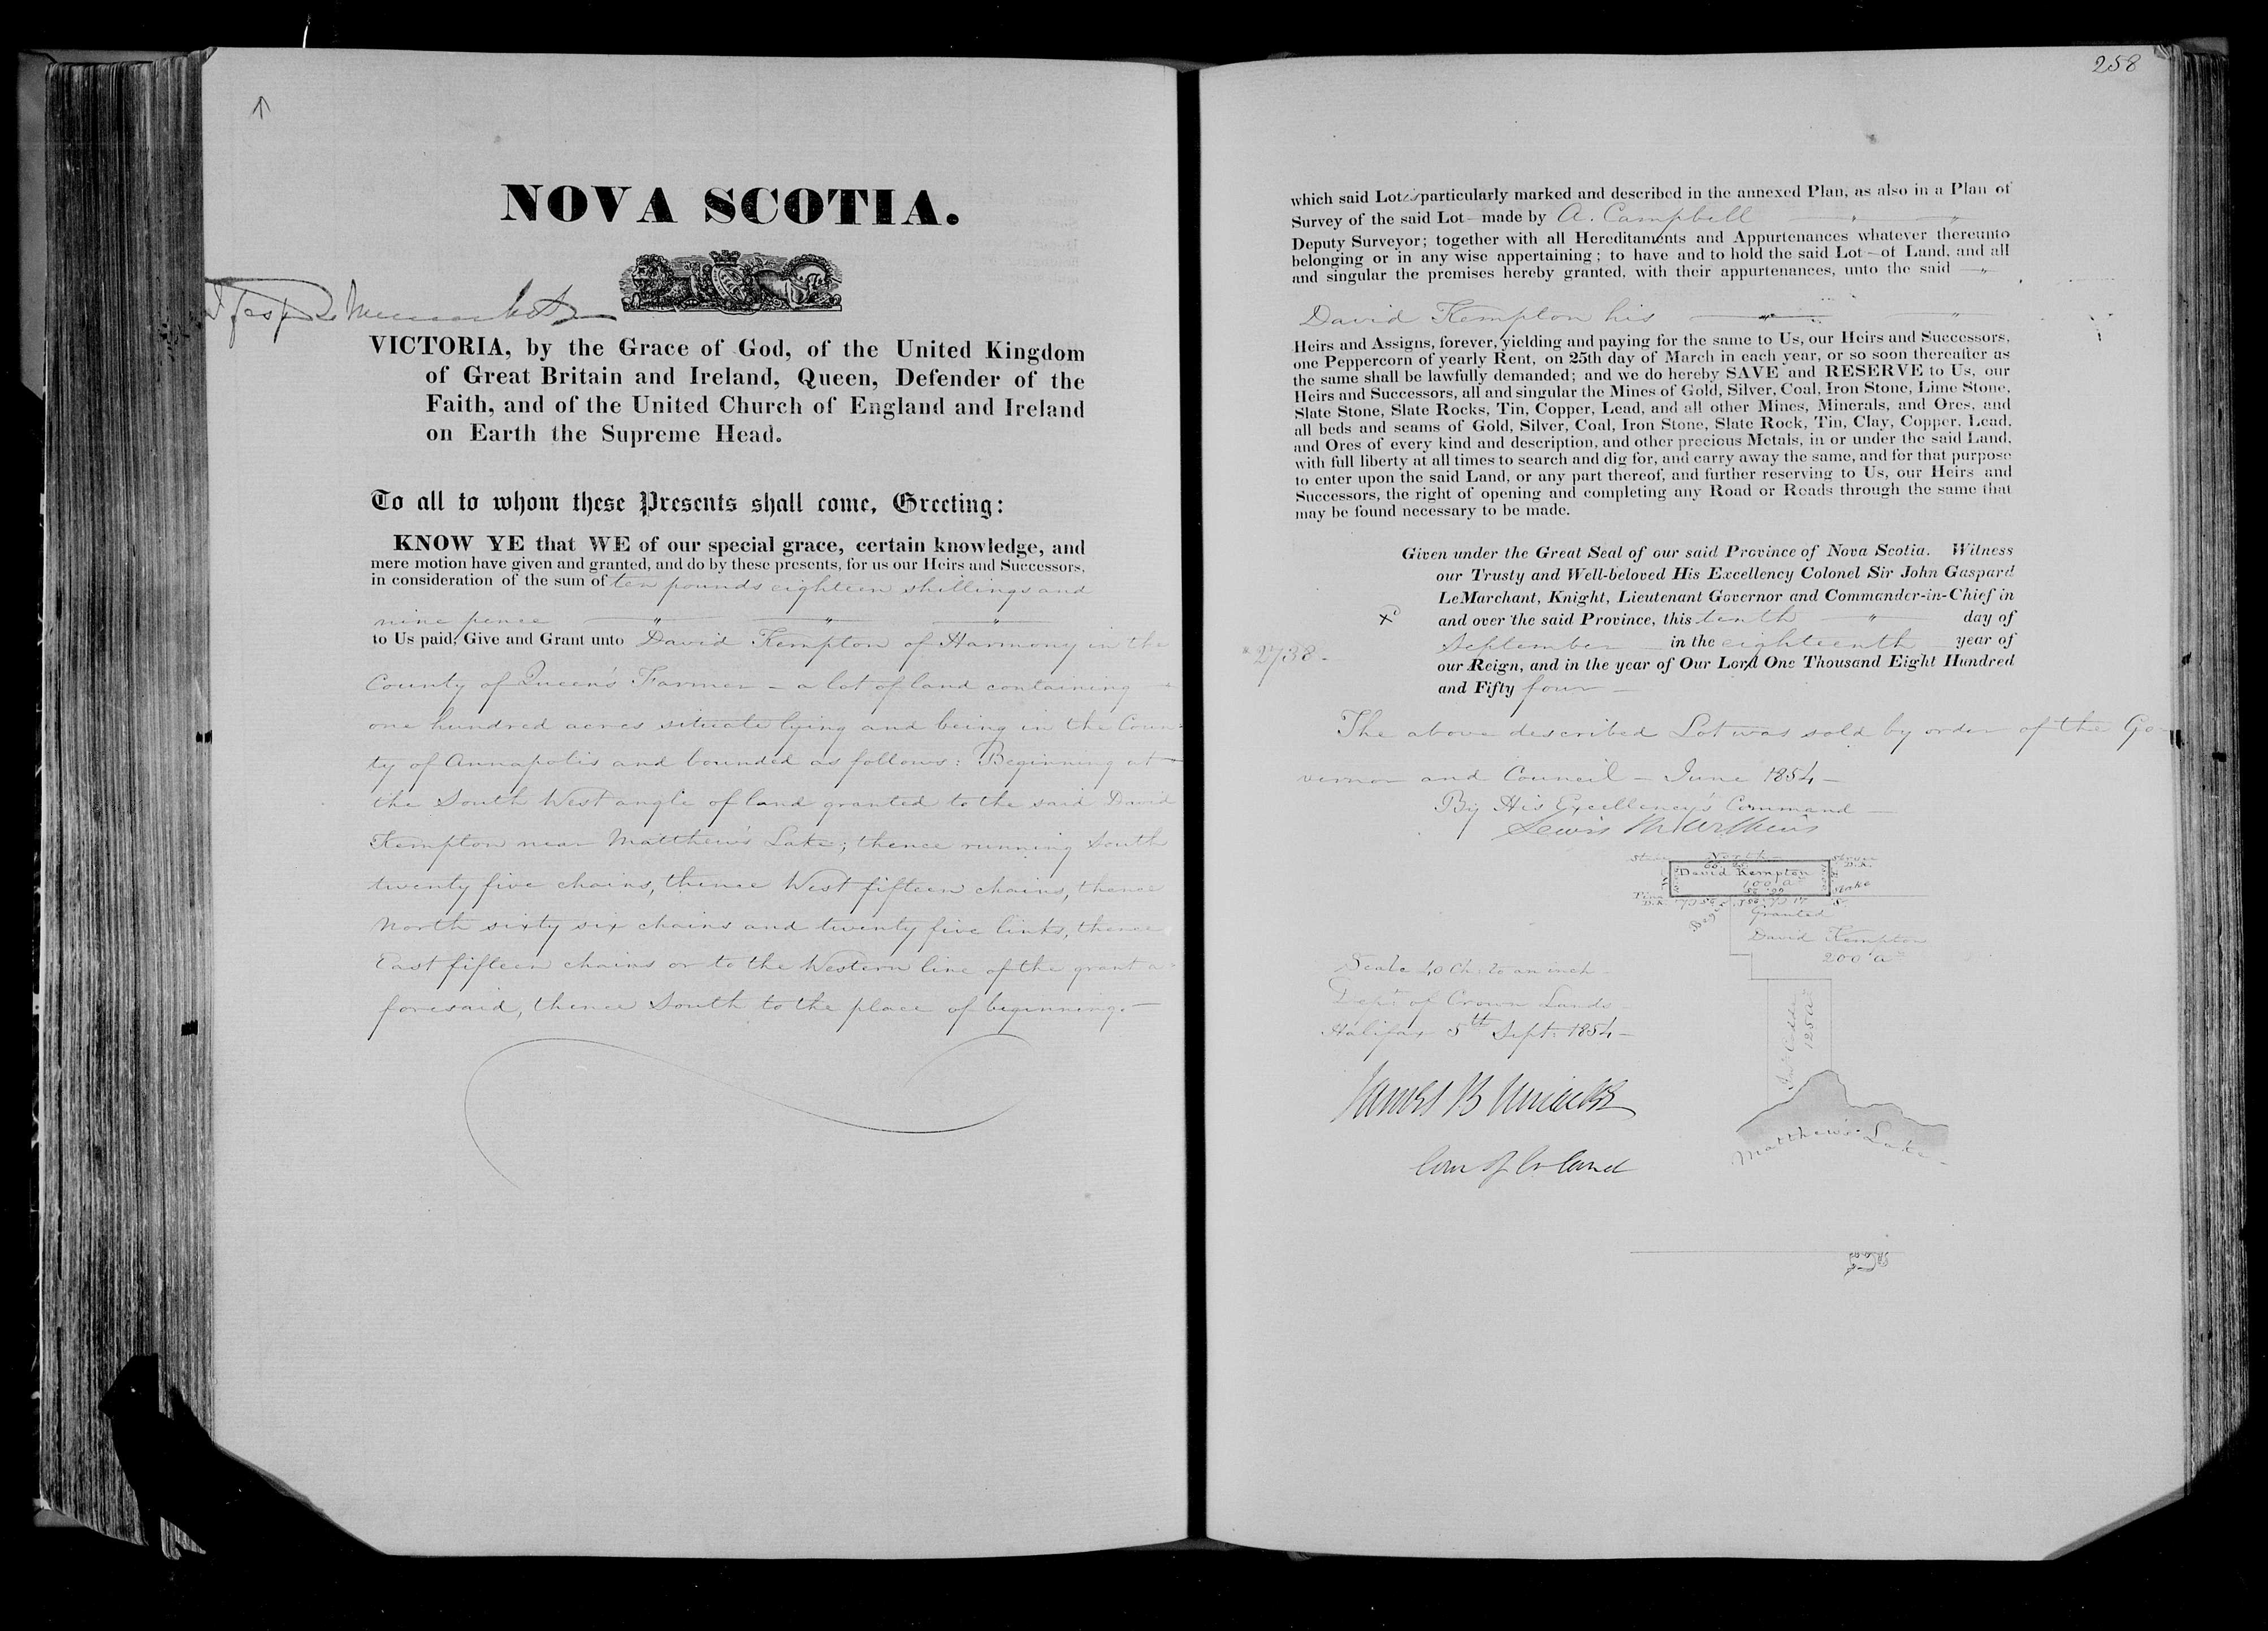 NOVA SCOTIA.
VICTORIA, by the Grace of God, of the United Kingdom
of Great Britain and Ireland, Queen, Defender of the
Faith, and of the United Church of England and Ireland
on Earth the Supreme Head.
To all to whom these Presents shall come, Greeting:
KNOW YE that WE of our special grace, certain knowledge, and
mere motion have given and granted, and do by these presents, for us our Heirs and Successors,
in consideration of the sum of ten pounds eighteen shillings and
nine pence
to Us paid, Give and Grant unto David Kempton of Harmony in the
County of Queen's Farmer – a lot of land containing
one hundred acres situate lying and being in the Coun-
ty of Annapolis and bounded as follows: Beginning at
the South West angle of land granted to the said David
Kempton near Matthew's Lake; thence running South
twenty five chains, thence West fifteen chains, thence
North sixty six chains and twenty five links, thence
East fifteen chains or to the Western line of the grant a-
foresaid, thence South to the place of beginning.—
258
which said Lot is particularly marked and described in the annexed Plan, as also in a Plan of
Survey of the said Lot – made by A. Campbell
Deputy Surveyor; together with all Hereditaments and Appurtenances whatever thereunto
belonging or in any wise appertaining; to have and to hold the said Lot – of Land, and all
and singular the premises hereby granted, with their appurtenances, unto the said
David Kempton his
Heirs and Assigns, forever, yielding and paying for the same to Us, our Heirs and Successors,
one Peppercorn of yearly Rent, on 25th day of March in each year, or so soon thereafter as
the same shall be lawfully demanded; and we do hereby SAVE and RESERVE to Us, our
Heirs and Successors, all and singular the Mines of Gold, Silver, Coal, Iron Stone, Lime Stone,
Slate Stone, Slate Rocks, Tin, Copper, Lead, and all other Mines, Minerals, and Ores, and
all beds and seams of Gold, Silver, Coal, Iron Stone, Slate Rock, Tin, Clay, Copper, Lead,
and Ores of every kind and description, and other precious Metals, in or under the said Land,
with full liberty at all times to search and dig for, and carry away the same, and for that purpose
to enter upon the said Land, or any part thereof, and further reserving to Us, our Heirs and
Successors, the right of opening and completing any Road or Roads through the same that
may be found necessary to be made.
Given under the Great Seal of our said Province of Nova Scotia. Witness
our Trusty and Well-beloved His Excellency Colonel Sir John Gaspard
LeMarchant, Knight, Lieutenant Governor and Commander-in-Chief in
and over the said Province, this tenth day of
2738 –
September in the eighteenth year of
our Reign, and in the year of Our Lord One Thousand Eight Hundred
and Fifty four –
The above described Lot was sold by order of the Go-
vernor and Council – June 1854 –
By His Excellency's Command –
North
David Kempton
100 a
Stake
Granted
David Kempton
200 a
Scale 40 Ch. to an inch –
Dept. of Crown Lands –
Halifax 5th Sept. 1854 –
125 a
James B Uniacke
Com of Cr Land
Matthew's Lake